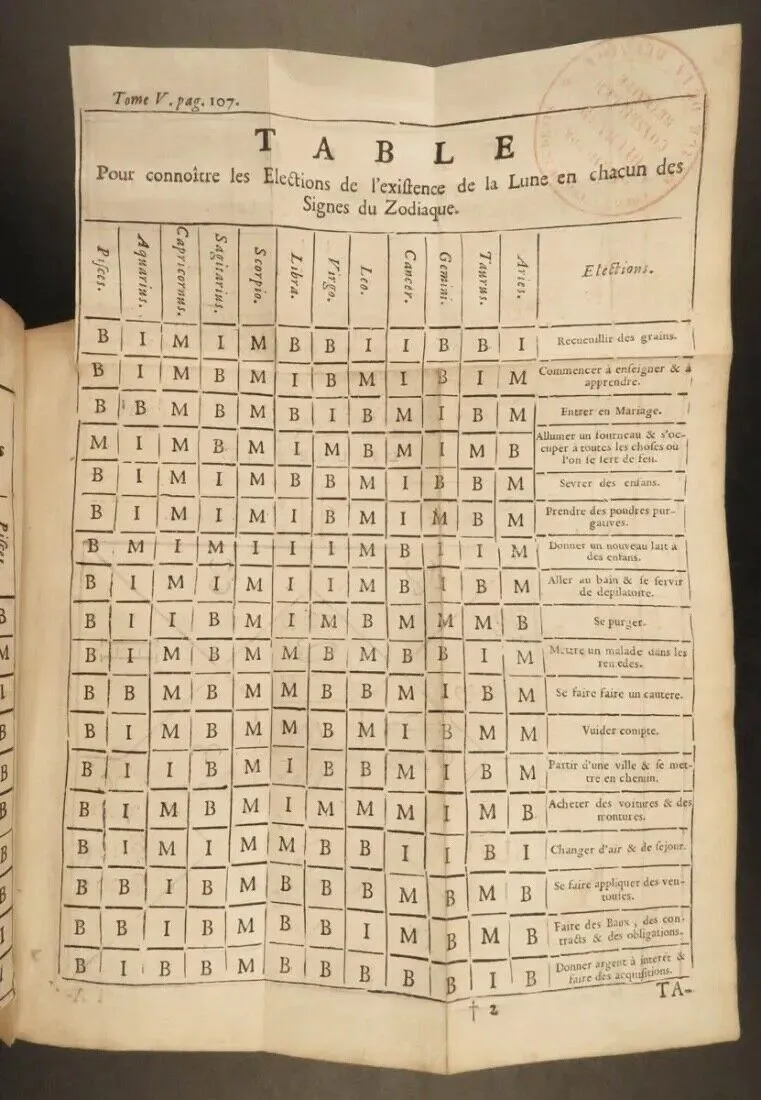 Tome V. pag. 107.
T A B L E
Pour connoître les Elections de l'existence de la Lune en chacun des
Signes du Zodiaque.
Pisces. Aquarius. Capricornus. Sagitarius. Scorpio. Libra. Virgo. Leo. Cancer. Gemini. Taurus. Aries. Elections.
B I M I M B B I I B B I Recueuillir des grains.
B I M B M I B M I B I M Commencer à enseigner & à
apprendre.
B B M B M B I B M I B M Entrer en Mariage.
M I M B M I M B M I M B Allumer un fourneau & s'oc-
cuper à toutes les choses où
l'on se sert de feu.
B I M I M B B M I B B M Sevrer des enfans.
B I M I M I B M I M B M Prendre des poudres pur-
gatives.
B M I M I I I M B I I M Donner un nouveau lait à
des enfans.
B I M I M I I M B I B M Aller au bain & se servir
de depilatoire.
B I I B M I M B M M M B Se purger.
B I M B M M B M B B I M Mettre un malade dans les
remedes.
B B M B M M B B M I B M Se faire faire un cautere.
B I M B M M B M I B M M Vuider compte.
B I I B M I B B M I B M Partir d'une ville & se met-
tre en chemin.
B I M B M I M M M I M B Acheter des voitures & des
montures.
B I M I M M B B I I B I Changer d'air & de sejour.
B B I B M B B B M B M B Se faire appliquer des ven-
touses.
B B I B M B B I M B M B Faire des Baux, des con-
tracts & des obligations.
B I B B M B B B B B I B Donner argent à interêt &
faire des acquisitions.
† 2 TA-
Pisces
B
M
I
B
B
B
B
B
I
I